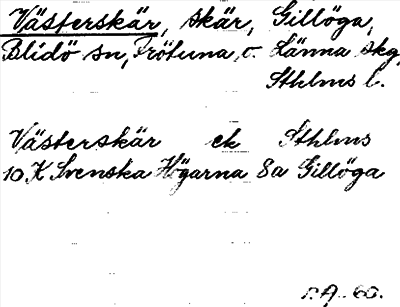 Västerskär, skär, Gillöga,
Blidö sn, Frötuna o. Länna skg,
Sthlms l.
Västerskär ek Sthlms
10 K Svenska Högarna 8a Gillöga
P.A. 60.